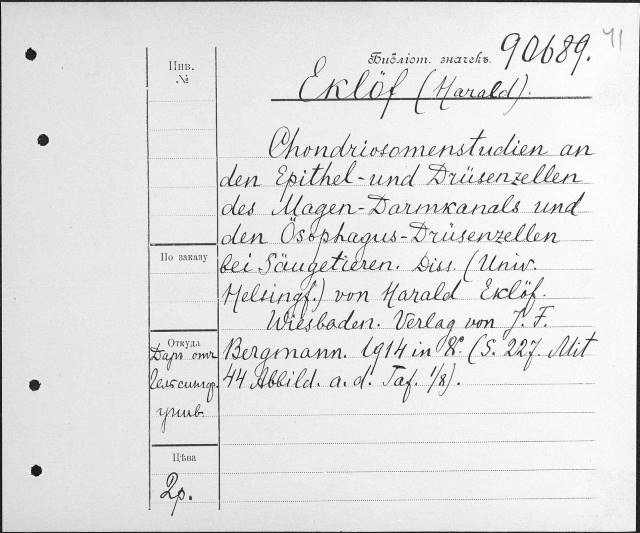 41
Библіот. значекъ 90689.
Инв.
№
Eklöf (Harald).
Chondriosomenstudien an
den Epithel-und Drüsenzellen
des Magen-Darmkanals und
den Ösophagus-Drüsenzellen
По заказу
bei Säugetieren. Diss. (Univ.
Helsingf.) von Harald Eklöf.
Wiesbaden. Verlag von J. F.
Откуда
Даръ отъ
Гельсингф.
унив.
Bergmann. 1914 in 8º. (S. 227. Mit
44 Abbild. a. d. Taf. 1/8).
Цѣна
2р.